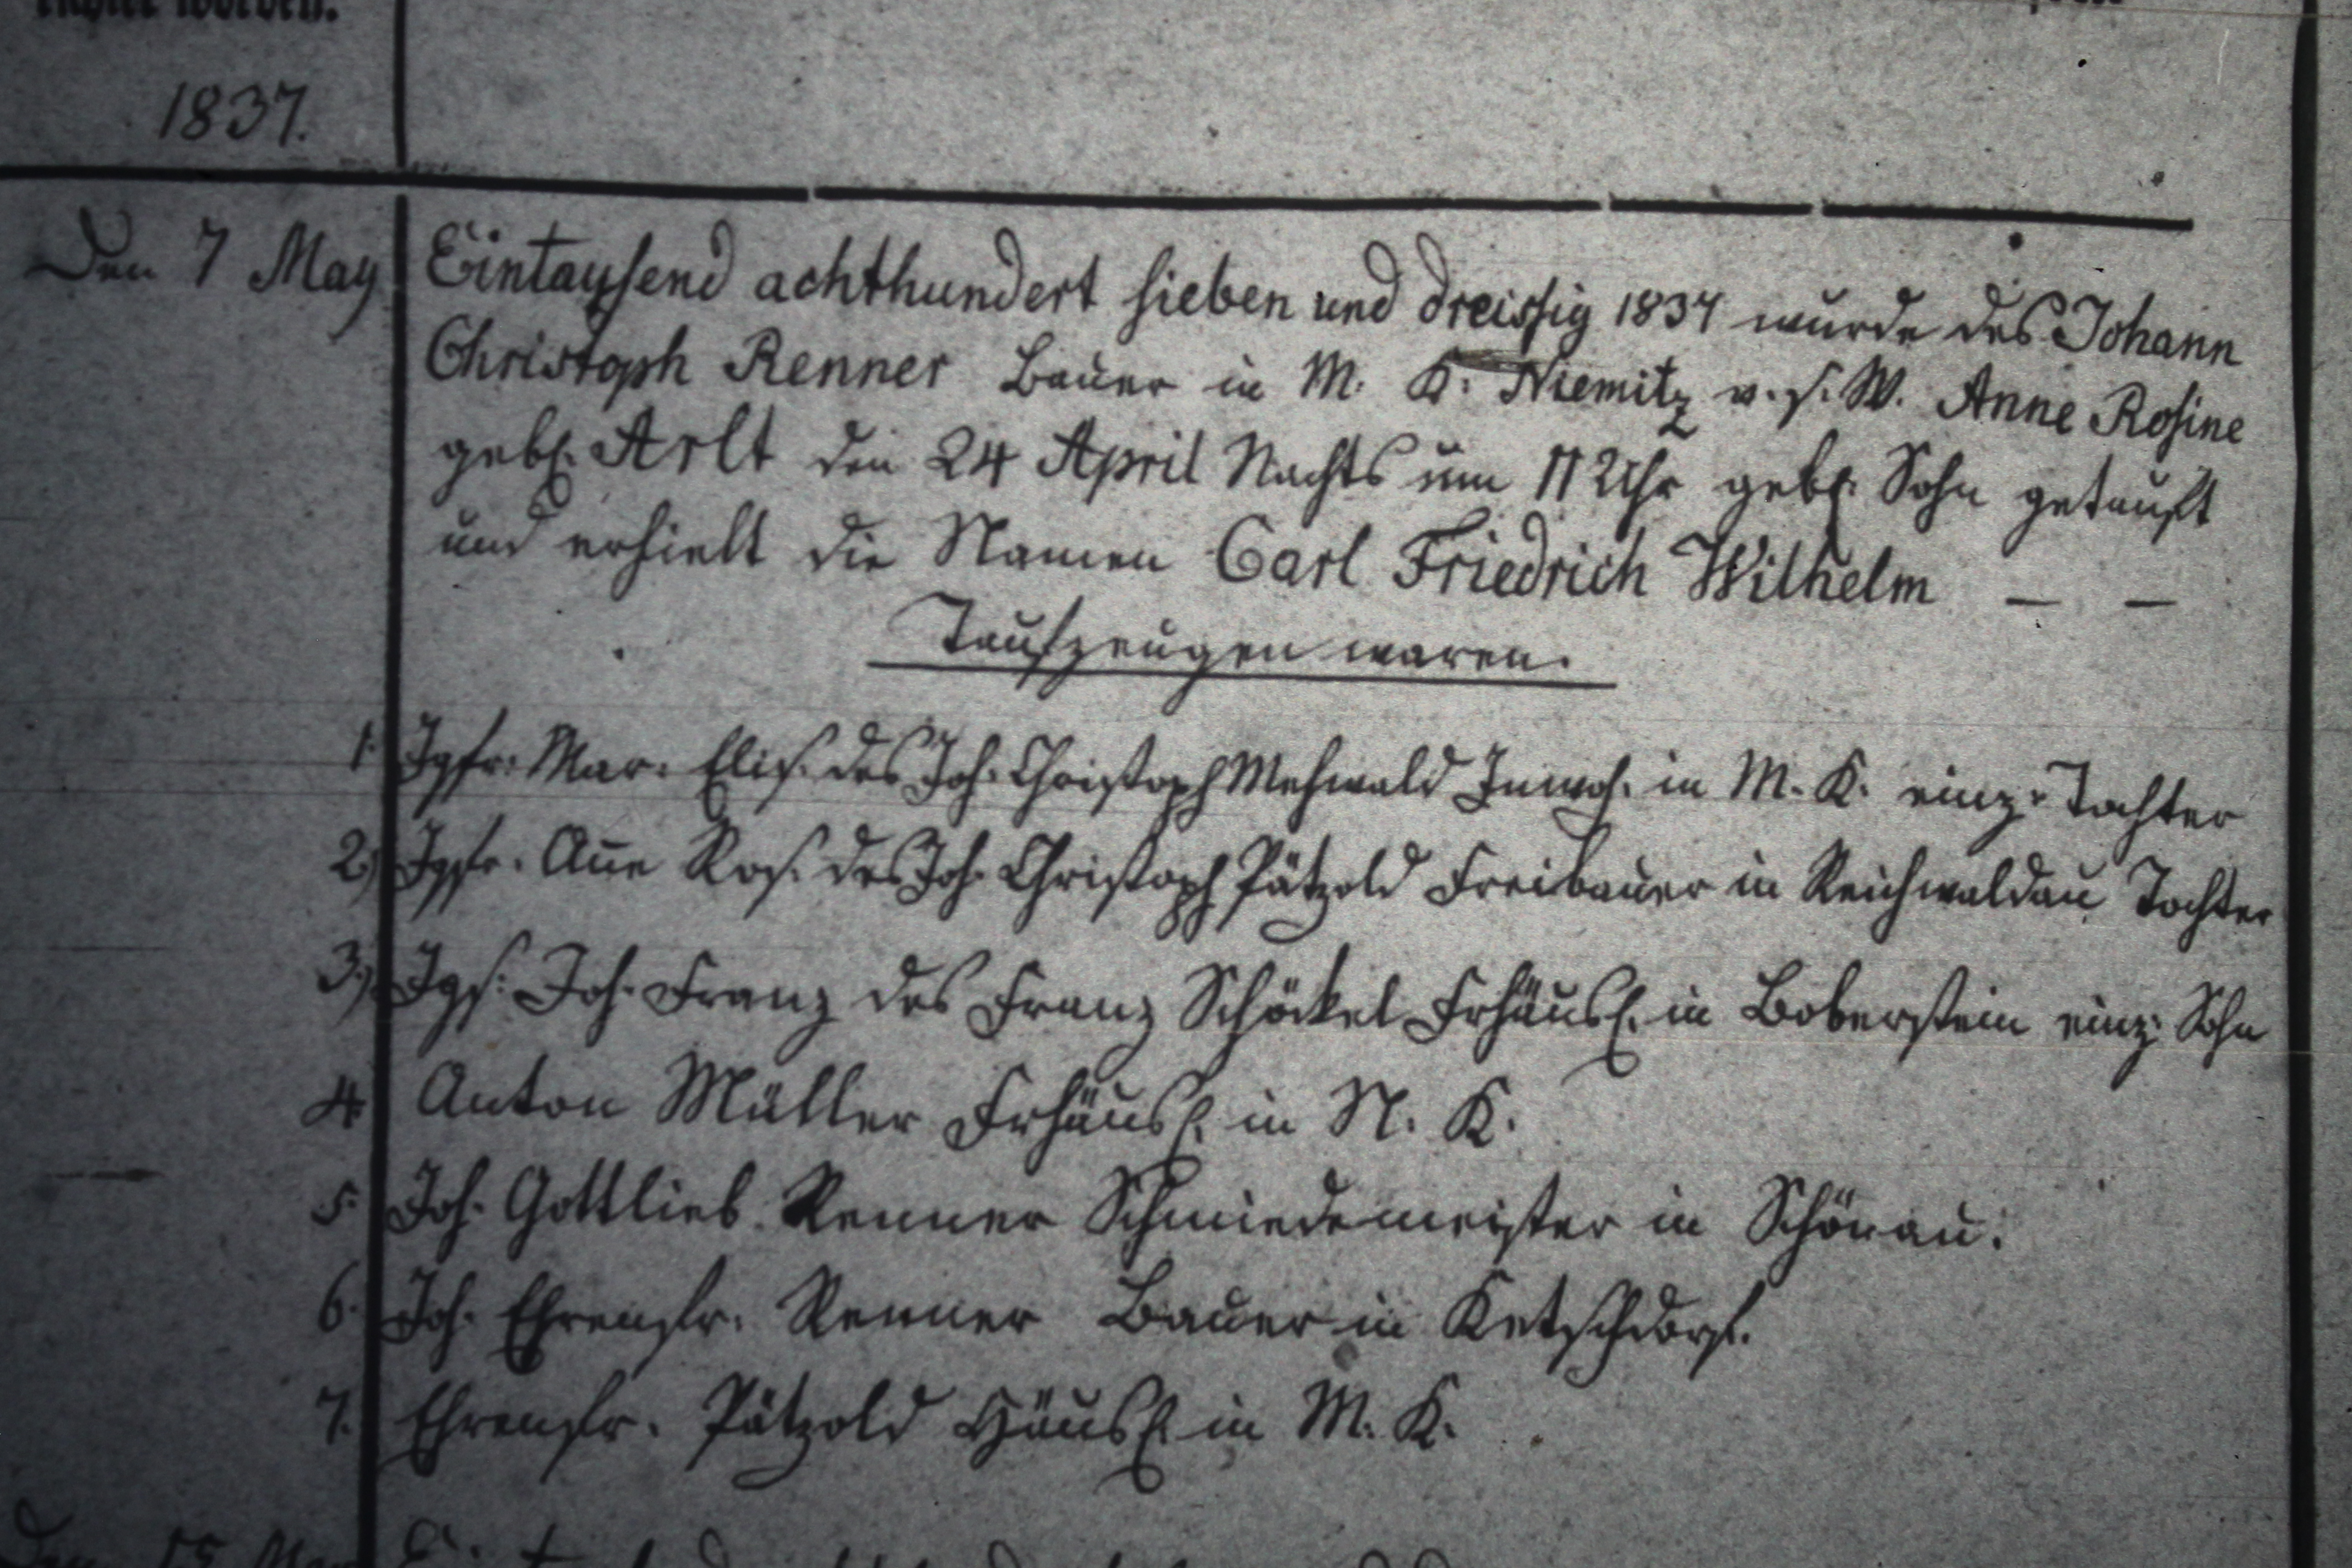 richtet worden.
1837.
Den 7 May
Eintausend achthundert sieben und dreissig 1837 wurde des Johann
Christoph Renner Bauer in M. K. Niemitz v. s. W. Anne Rosine
geb. Arlt den 24 April Nachts um 11 Uhr geb. Sohn getauft
und erhielt die Namen Carl Friedrich Wilhelm — —
Taufzeugen waren.
1. Jgfr. Mar. Elis. des Joh. Christoph Mehwald Inwoh. in M. K. einz. Tochter
2.) Jgfr. Añe Ros. des Joh. Christoph Pätzold Freibauer in Reichwaldau Tochter
3.) Jgs. Joh. Franz des Franz Schöckel Frhäusl. in Boberstein einz. Sohn
4. Anton Müller Frhäusl. in N. K.
5. Joh. Gottlieb Renner Schmiedemeister in Schönau.
6. Joh. Ehrenfr. Renner Bauer in Ketschdorf.
7. Ehrenfr. Pätzold Häusl. in M. K.